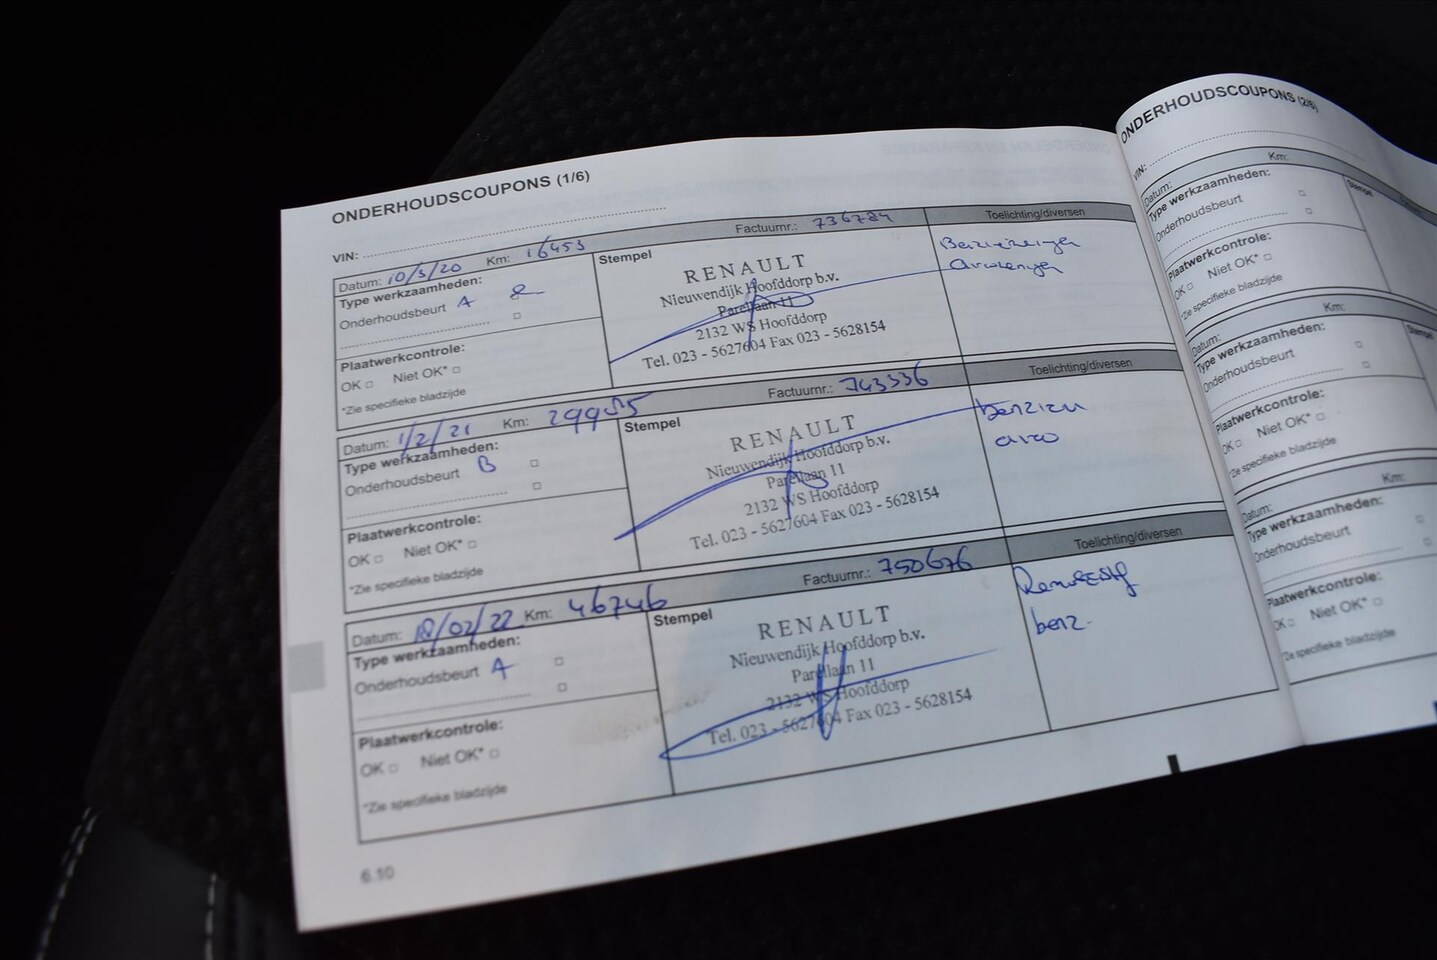 ONDERHOUDSCOUPONS (1/6)
VIN:
Datum: 10/3/20 Km: 16453 Factuurnr.: 736784 Toelichting/diversen
Type werkzaamheden:
Onderhoudsbeurt A
Plaatwerkcontrole:
OK □ Niet OK* □
*Zie specifieke bladzijde
Stempel
RENAULT
Nieuwendijk Hoofddorp b.v.
Parellaan 11
2132 WS Hoofddorp
Tel. 023 - 5627604 Fax 023 - 5628154
Datum: 1/2/21 Km: 29985 Factuurnr.: 743336 Toelichting/diversen
Type werkzaamheden:
Onderhoudsbeurt B □
□
Plaatwerkcontrole:
OK □ Niet OK* □
*Zie specifieke bladzijde
Stempel
RENAULT
Nieuwendijk Hoofddorp b.v.
Parellaan 11
2132 WS Hoofddorp
Tel. 023 - 5627604 Fax 023 - 5628154
Datum: 18/02/22 Km: 46746 Factuurnr.: 750676 Toelichting/diversen
Type werkzaamheden:
Onderhoudsbeurt A □
□
Plaatwerkcontrole:
OK □ Niet OK* □
*Zie specifieke bladzijde
Stempel
RENAULT
Nieuwendijk Hoofddorp b.v.
Parellaan 11
2132 WS Hoofddorp
Tel. 023 - 5627604 Fax 023 - 5628154
benz.
6.10
ONDERHOUDSCOUPONS (2/6)
VIN:
Datum: Km:
Type werkzaamheden:
Onderhoudsbeurt □
□
Plaatwerkcontrole:
OK □ Niet OK* □
*Zie specifieke bladzijde
Stempel
Datum: Km:
Type werkzaamheden:
Onderhoudsbeurt □
□
Plaatwerkcontrole:
OK □ Niet OK* □
*Zie specifieke bladzijde
Stempel
Datum: Km:
Type werkzaamheden:
Onderhoudsbeurt □
□
Plaatwerkcontrole:
OK □ Niet OK* □
*Zie specifieke bladzijde